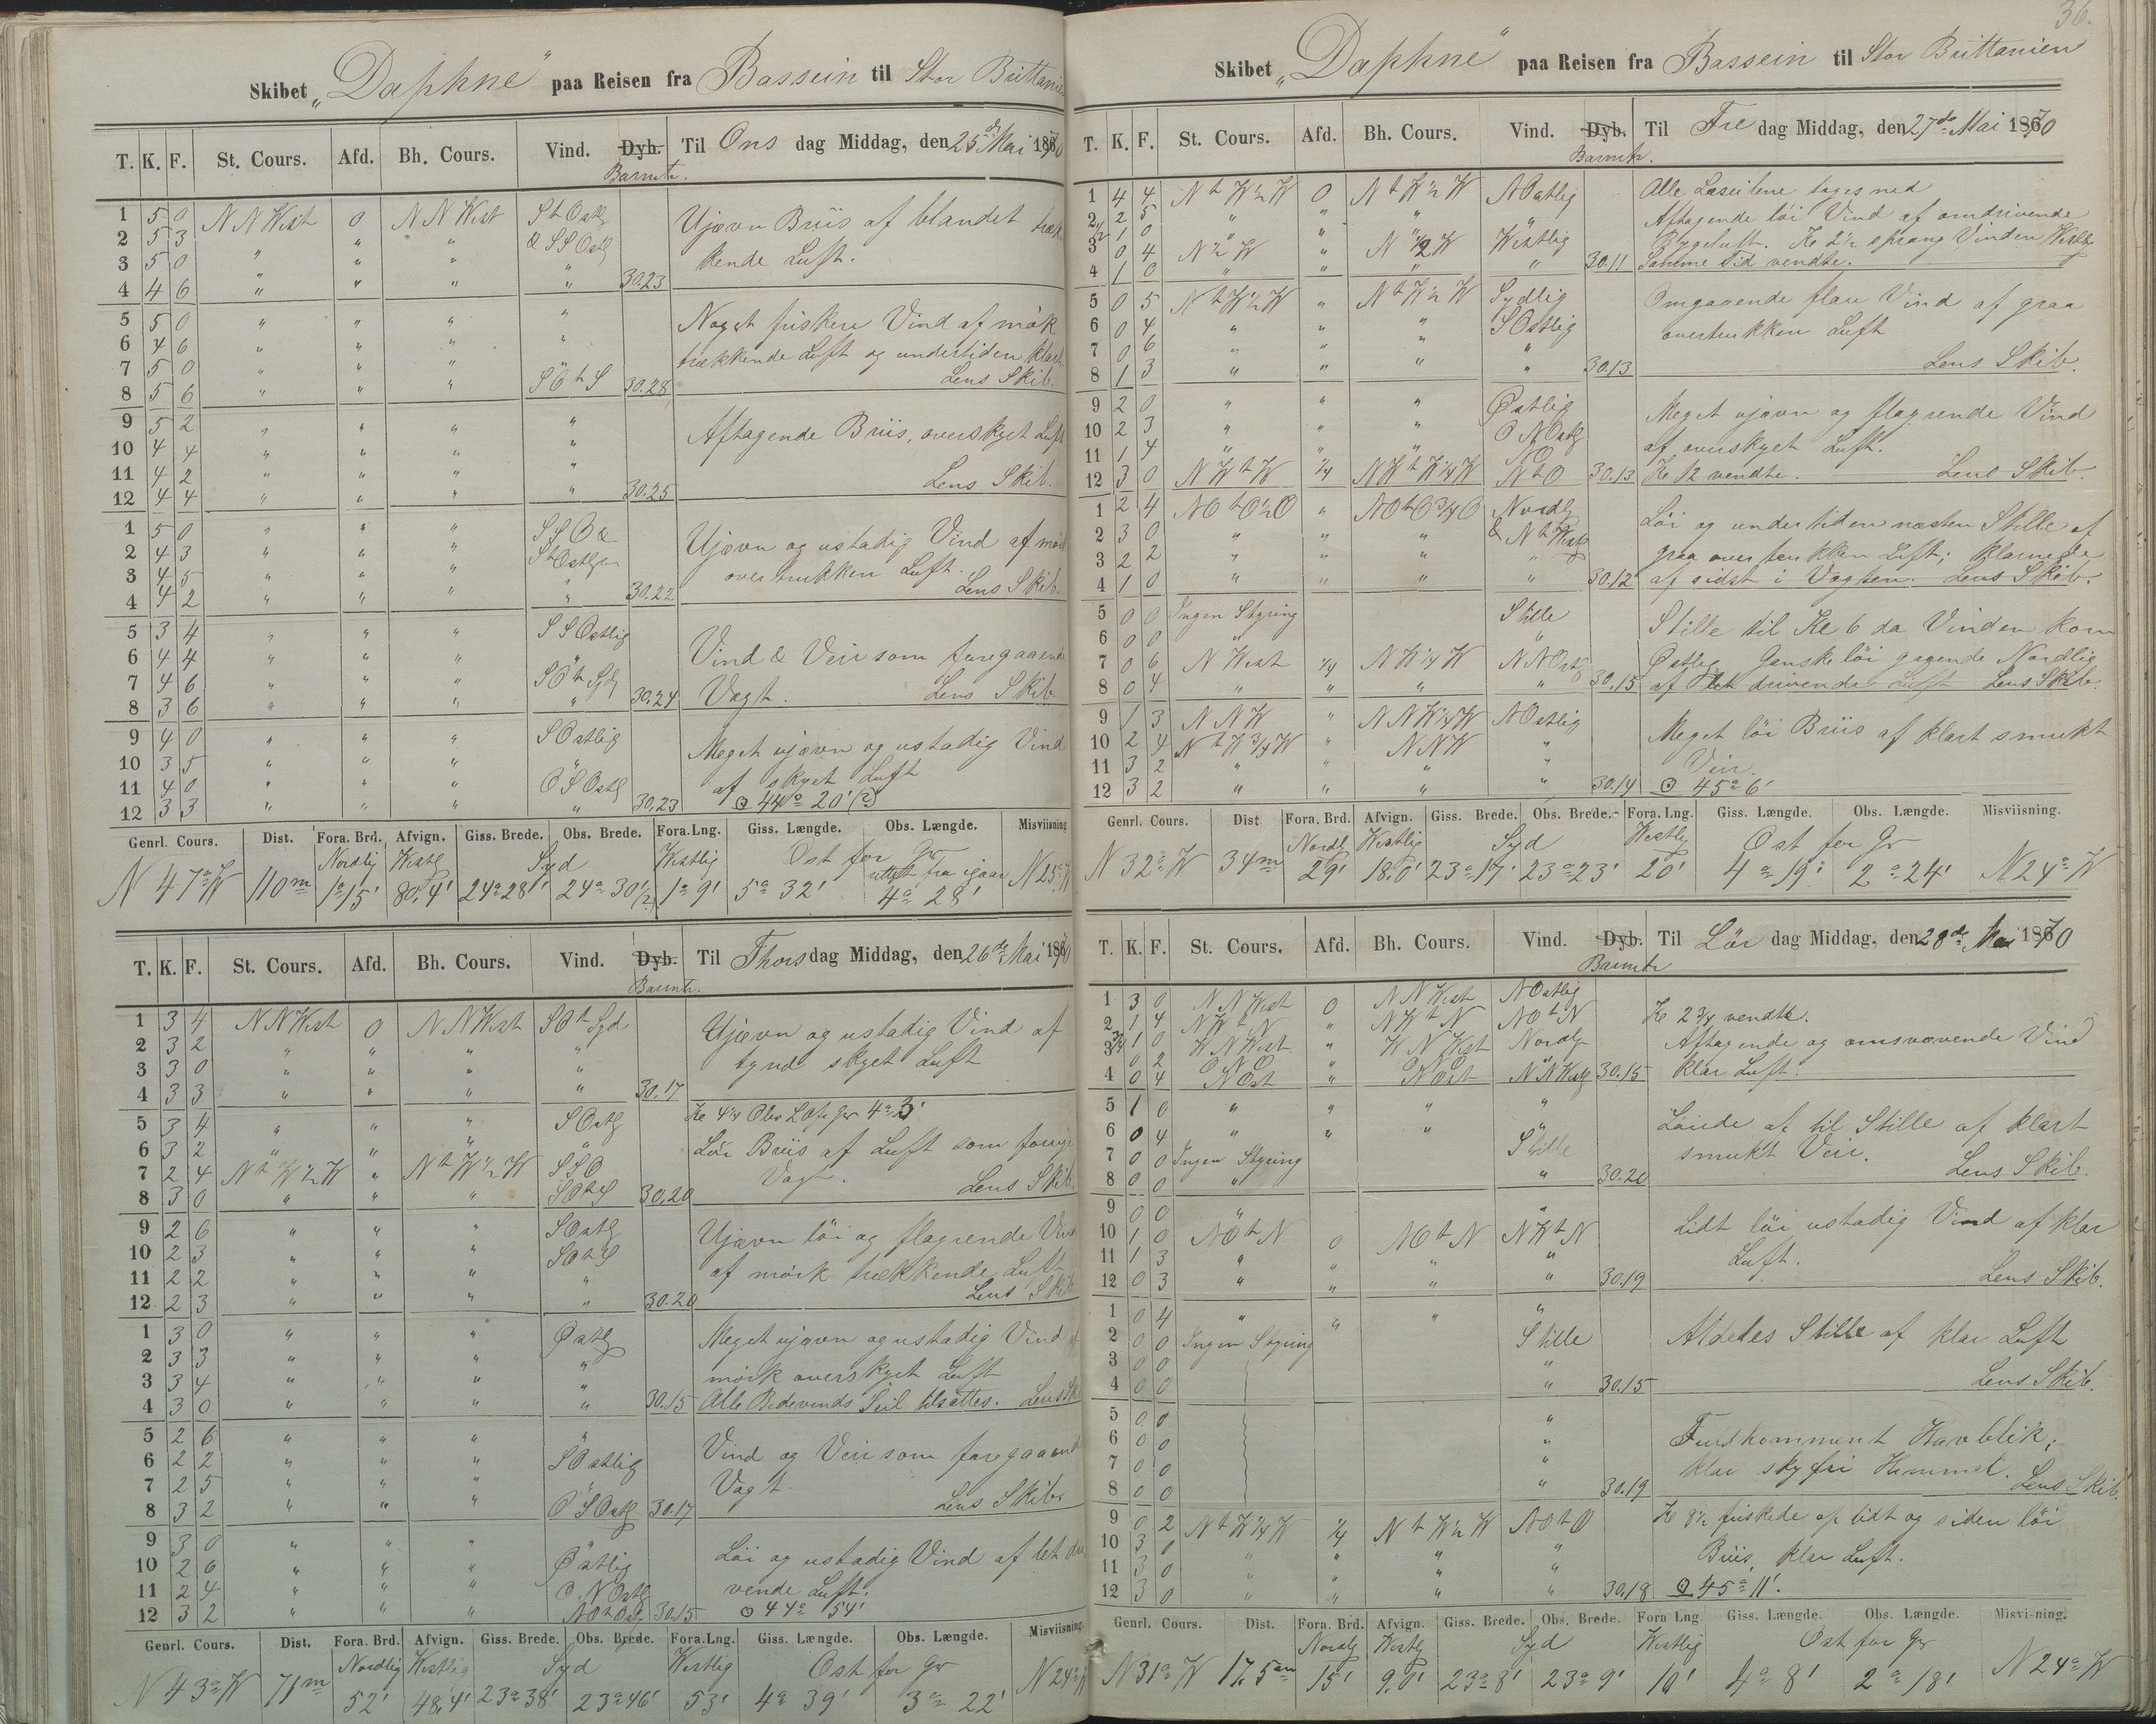 Skibet „Daphne“ paa Reisen fra Bassein til Stor Brittanien
T. K. F. St. Cours. Afd. Bh. Cours. Vind. Dyb. Til Ons dag Middag, den 25de Mai 1870
Barmtr.
1 5 0 NNWest 0 NNWest StOstlg Ujævn Briis af blandet træk
2 5 3 " " " & SSOstlg
3 5 0 " " " " kende Luft.
4 4 6 " " " " 30.23
5 5 0 " " " " Noget friskere Vind af mørk
6 4 6 " " " "
7 5 0 " " " " trækkende Luft og undertiden klart
8 5 6 " " " SOtS 30.28 Lens Skib.
9 5 2 " " " "
10 4 4 " " " " Aftagende Briis, overskyet Luft
11 4 2 " " " "
12 4 4 " " " " 30.25 Lens Skib.
1 5 0 " " " SSO &
2 4 3 " " " StOstlg Ujævn og ustadig Vind af mørk
3 4 5 " " " overtrukken Luft.
4 4 2 " " " " 30.22 Lens Skib.
5 3 4 " " " SSOstlig
6 4 4 " " " " Vind & Veir som foregaaende
7 4 6 " " " SOtSyd
8 3 6 " " " " 30.24 Vagt. Lens Skib
9 4 0 " " " SOstlig
10 3 5 " " " " Meget ujævn og ustadig Vind
11 4 0 " " " OSOstlg af skyet Luft
12 3 3 " " " " 30.23 ⊙ 44° 20' (?)
Genrl. Cours. Dist. Fora. Brd. Afvign. Giss. Brede. Obs. Brede. Fora. Lng. Giss. Længde. Obs. Længde. Misviisning
Nordlig Westlg Syd Westlig Ost for Gr
N 47° W 110m 1° 15' 80,4' 24° 28' 24° 30' (?) 1° 9' 5° 32' 4° 28' N 25° W
T. K. F. St. Cours. Afd. Bh. Cours. Vind. Dyb. Til Thors dag Middag, den 26de Mai 1870
Barmtr.
1 3 4 NNWest 0 NNWest SOtSyd Ujævn og ustadig Vind af
2 3 2 " " " "
3 3 0 " " " " tynd skyet Luft
4 3 3 " " " " 30.17
5 3 4 " " " SOstlg Kl 4½ Obs L Ofr Gr 4° 3'
6 3 2 " " " " Löi Briis af Luft som forrige
7 2 4 NtW½W " NtW½W SSO Vagt.
8 3 0 " " " SOtS 30.20 Lens Skib.
9 2 6 " " " SOstlg
10 2 3 " " " SOtS Ujævn löi og flagrende Vind
11 2 2 " " " " af mörk trækkende Luft
12 2 3 " " " " 30.20 Lens Skib
1 3 0 " " " Østlg Meget ujævn og ustadig Vind af
2 3 3 " " " "
3 3 4 " " " " mörk overskyet Luft
4 3 0 " " " " 30.15 Alle Bidevinds Seil tilsattes. Lens Sk
5 2 6 " " " "
6 2 2 " " " SOstlig Vind og Veir som foregaaende
7 2 5 " " " " Vagt.
8 3 2 " " " OSOstlg 30.17 Lens Skib
9 3 0 " " " "
10 2 6 " " " Østlig Löi og ustadig Vind af let dri
11 2 4 " " " ONOstlg vende Luft.
12 3 2 " " " NOtOstlg 30.15 ⊙ 44° 54'
Genrl. Cours. Dist. Fora. Brd. Afvign. Giss. Brede. Obs. Brede. Fora. Lng. Giss. Længde. Obs. Længde. Misviisning.
Nordlig Westlig Syd Westlig Ost for Gr
N 43° W 71m 52' 48,4' 23° 38' 23° 46' 53' 4° 39' 3° 22' N 24° W
36.
Skibet „Daphne“ paa Reisen fra Bassein til Stor Brittanien
T. K. F. St. Cours. Afd. Bh. Cours. Vind. Dyb. Til Fre dag Middag, den 27de Mai 1870
Barmtr.
1 4 4 NtW½W 0 NtW½W NOstlig Alle Læseilene toges ned
2 2 5 " " " Aftagende löi Vind af omdrivende
½ 1 0 " " " Bygeluft. Kl 2½ sprang Vinden Westlg
3 0 4 N½W " N½W Westlig
4 1 0 " " " " 30.11 Samme Tid vendte.
5 0 5 NtW½W " NtW½W Sydlig Omgaaende flau Vind af graa
6 0 4 " " " SOstlig overtrukken Luft
7 0 6 " " " "
8 1 3 " " " " 30.13 Lens Skib.
9 2 0 " " " Østlig Meget ujævn og flagrende Vind
10 2 3 " " " ONOstlg
11 1 4 " " " NO af overskyet Luft.
12 3 0 NWtW ¼ NWtW¼W NtO 30.13 Kl 12 vendte. Lens Skib.
1 2 4 NOtO½O " NOtO¾O Nordlg Löi og undertiden næsten Stille af
2 3 0 " " " & NtWestlg
3 2 2 " " " " graa overtrukken Luft; klarnede
4 1 0 " " " " 30.12 af sidst i Vagten. Lens Skib.
5 0 0 Ingen Styring Stille
6 0 0 " " Stille til Kl 6 da Vinden kom
7 0 6 NWest ¼ NW¼W NNOstlg Østlig. Ganske löi gagende Nordlig
8 0 4 " " " " 30.15 af let drivende Luft Lens Skib.
9 1 3 NNW " NNW¼W NOstlig
10 2 4 NtW¾W " NNW " Meget löi Briis af klart smukt
11 3 2 " " " " Veir.
12 3 2 " " " " 30.14 ⊙ 45° 6'
Genrl. Cours. Dist Fora. Brd. Afvign. Giss. Brede. Obs. Brede. Fora. Lng. Giss. Længde. Obs. Længde. Misviisning.
Nordlg Westlig Syd Westlg Ost for Gr
N 32° W 34m 29' 18,0' 23° 17' 23° 23' 20' 4° 19' 2° 24' N 24° W
T. K. F. St. Cours. Afd. Bh. Cours. Vind. Dyb. Til Lör dag Middag, den 28de Mai 1870
Barmtr
1 3 0 NNWest 0 NNWest NOstlig Kl 2¾ vendte.
2 1 4 NWtN " NWtN NOtN
¾ 1 0 WNWest " WNWest Nordlg Aftagende og omsvævende Vind
3 0 2
4 0 4 NOst " NOst NNWestlg 30.15 klar Luft.
5 1 0 " " " "
6 0 4 " " " " Löiede af til Stille af klart
7 0 0 Ingen Styring Stille smukt Veir.
8 0 0 " " 30.20 Lens Skib.
9 0 0 " "
10 1 0 NOtN 0 NOtN NWtN Lidt löi ustadig Vind af klar
11 1 3 " " " " Luft.
12 0 3 " " " " 30.19 Lens Skib.
1 0 4 " " " "
2 0 0 Ingen Styring Stille Aldeles Stille af klar Luft
3 0 0 "
4 0 0 " 30.15 Lens Skib.
5 0 0 "
6 0 0 " Fuldkomment Havblik;
7 0 0 " klar skyfri Himmel.
8 0 0 " 30.19 Lens Skib.
9 0 2 NtW¼W ¼ NtW½W NOtO Kl 8½ friskede op lidt og siden löi
10 3 0 " " " "
11 3 0 " " " " Briis, klar Luft.
12 3 0 " " " " 30.18 ⊙ 45° 11'.
Genrl. Cours. Dist. Fora. Brd. Afvign. Giss. Brede. Obs. Brede. Fora Lng. Giss. Længde. Obs. Længde. Misvi-ning.
Nordlg Westlg Syd Westlig Ost for Gr
N 31° W 17,5m 15' 9,0' 23° 8' 23° 9' 10' 4° 8' 2° 18' N 24° W